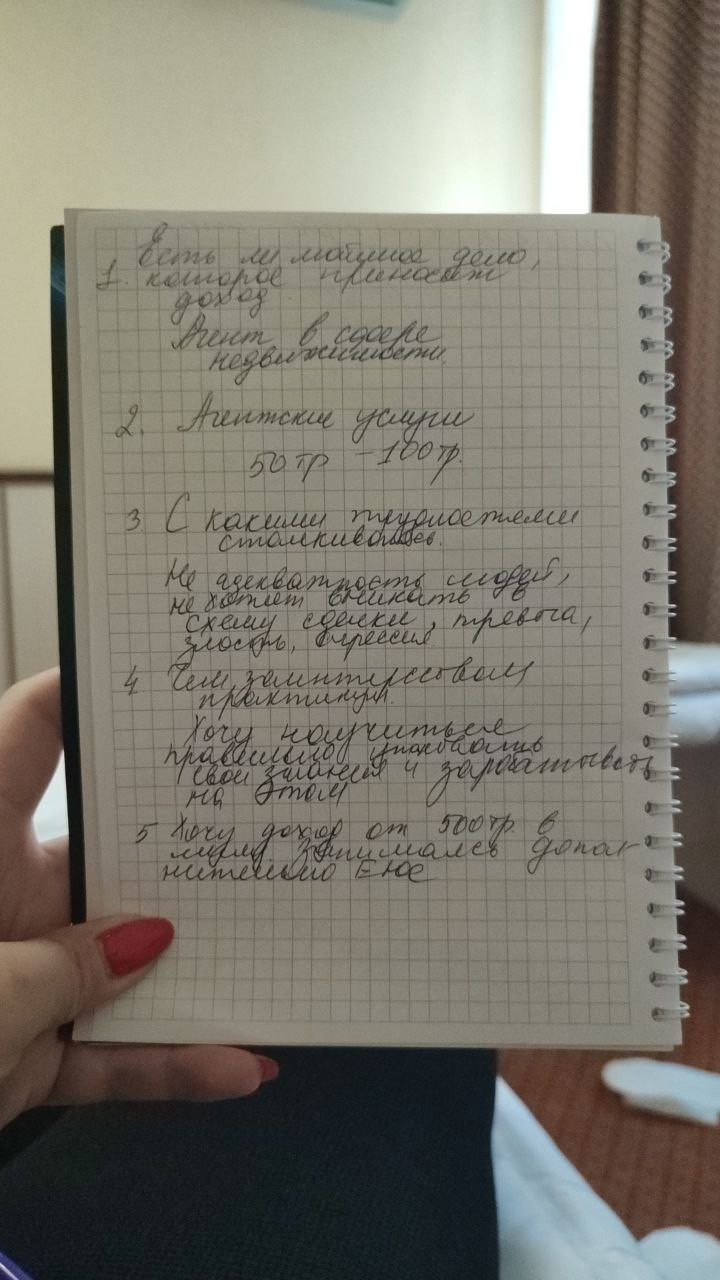 Есть ли любимое дело,
1. которое приносит
доход
Агент в сфере
недвижимости.
2. Агентские услуги
50тр - 100тр.
3 С какими трудностями
сталкиваюсь.
Не адекватность людей,
не хотят вникать в
схему сделки, тревога,
злость, агрессия
4 Чем заинтересовал
практикум.
Хочу научиться
правильно упаковать
свои знания и зарабатывать
на этом
5 Хочу доход от 500тр. в
занимаясь допол
нительно